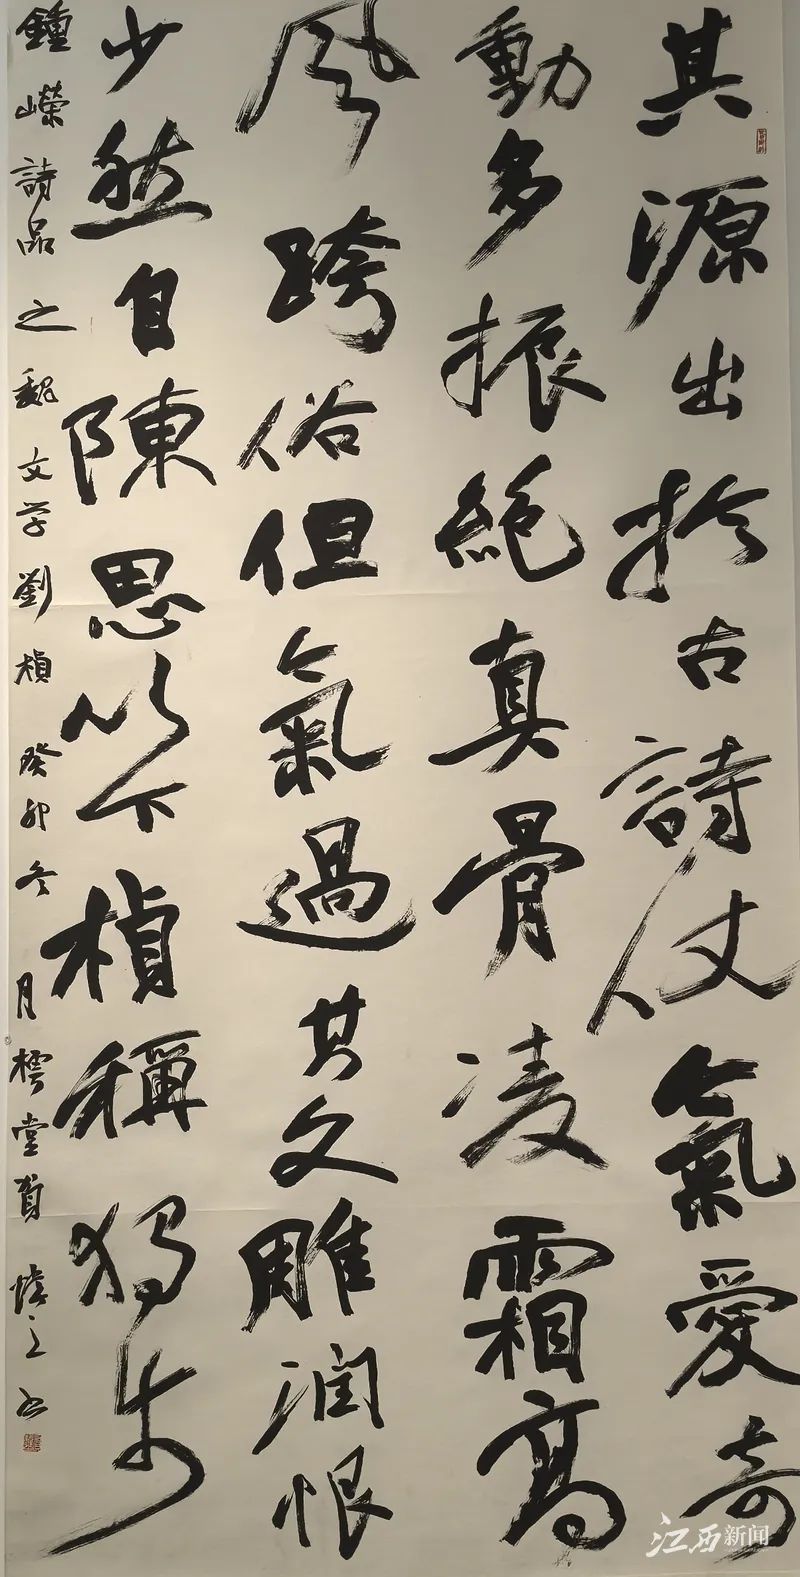 其源出於古詩仗氣愛奇
動多振絕真骨凌霜高
風跨俗但氣過其文雕润恨
少然自陳思以下楨稱獨步
鍾嶸詩品之魏文学劉楨癸卯冬月樗堂賀煒之书
江西新闻